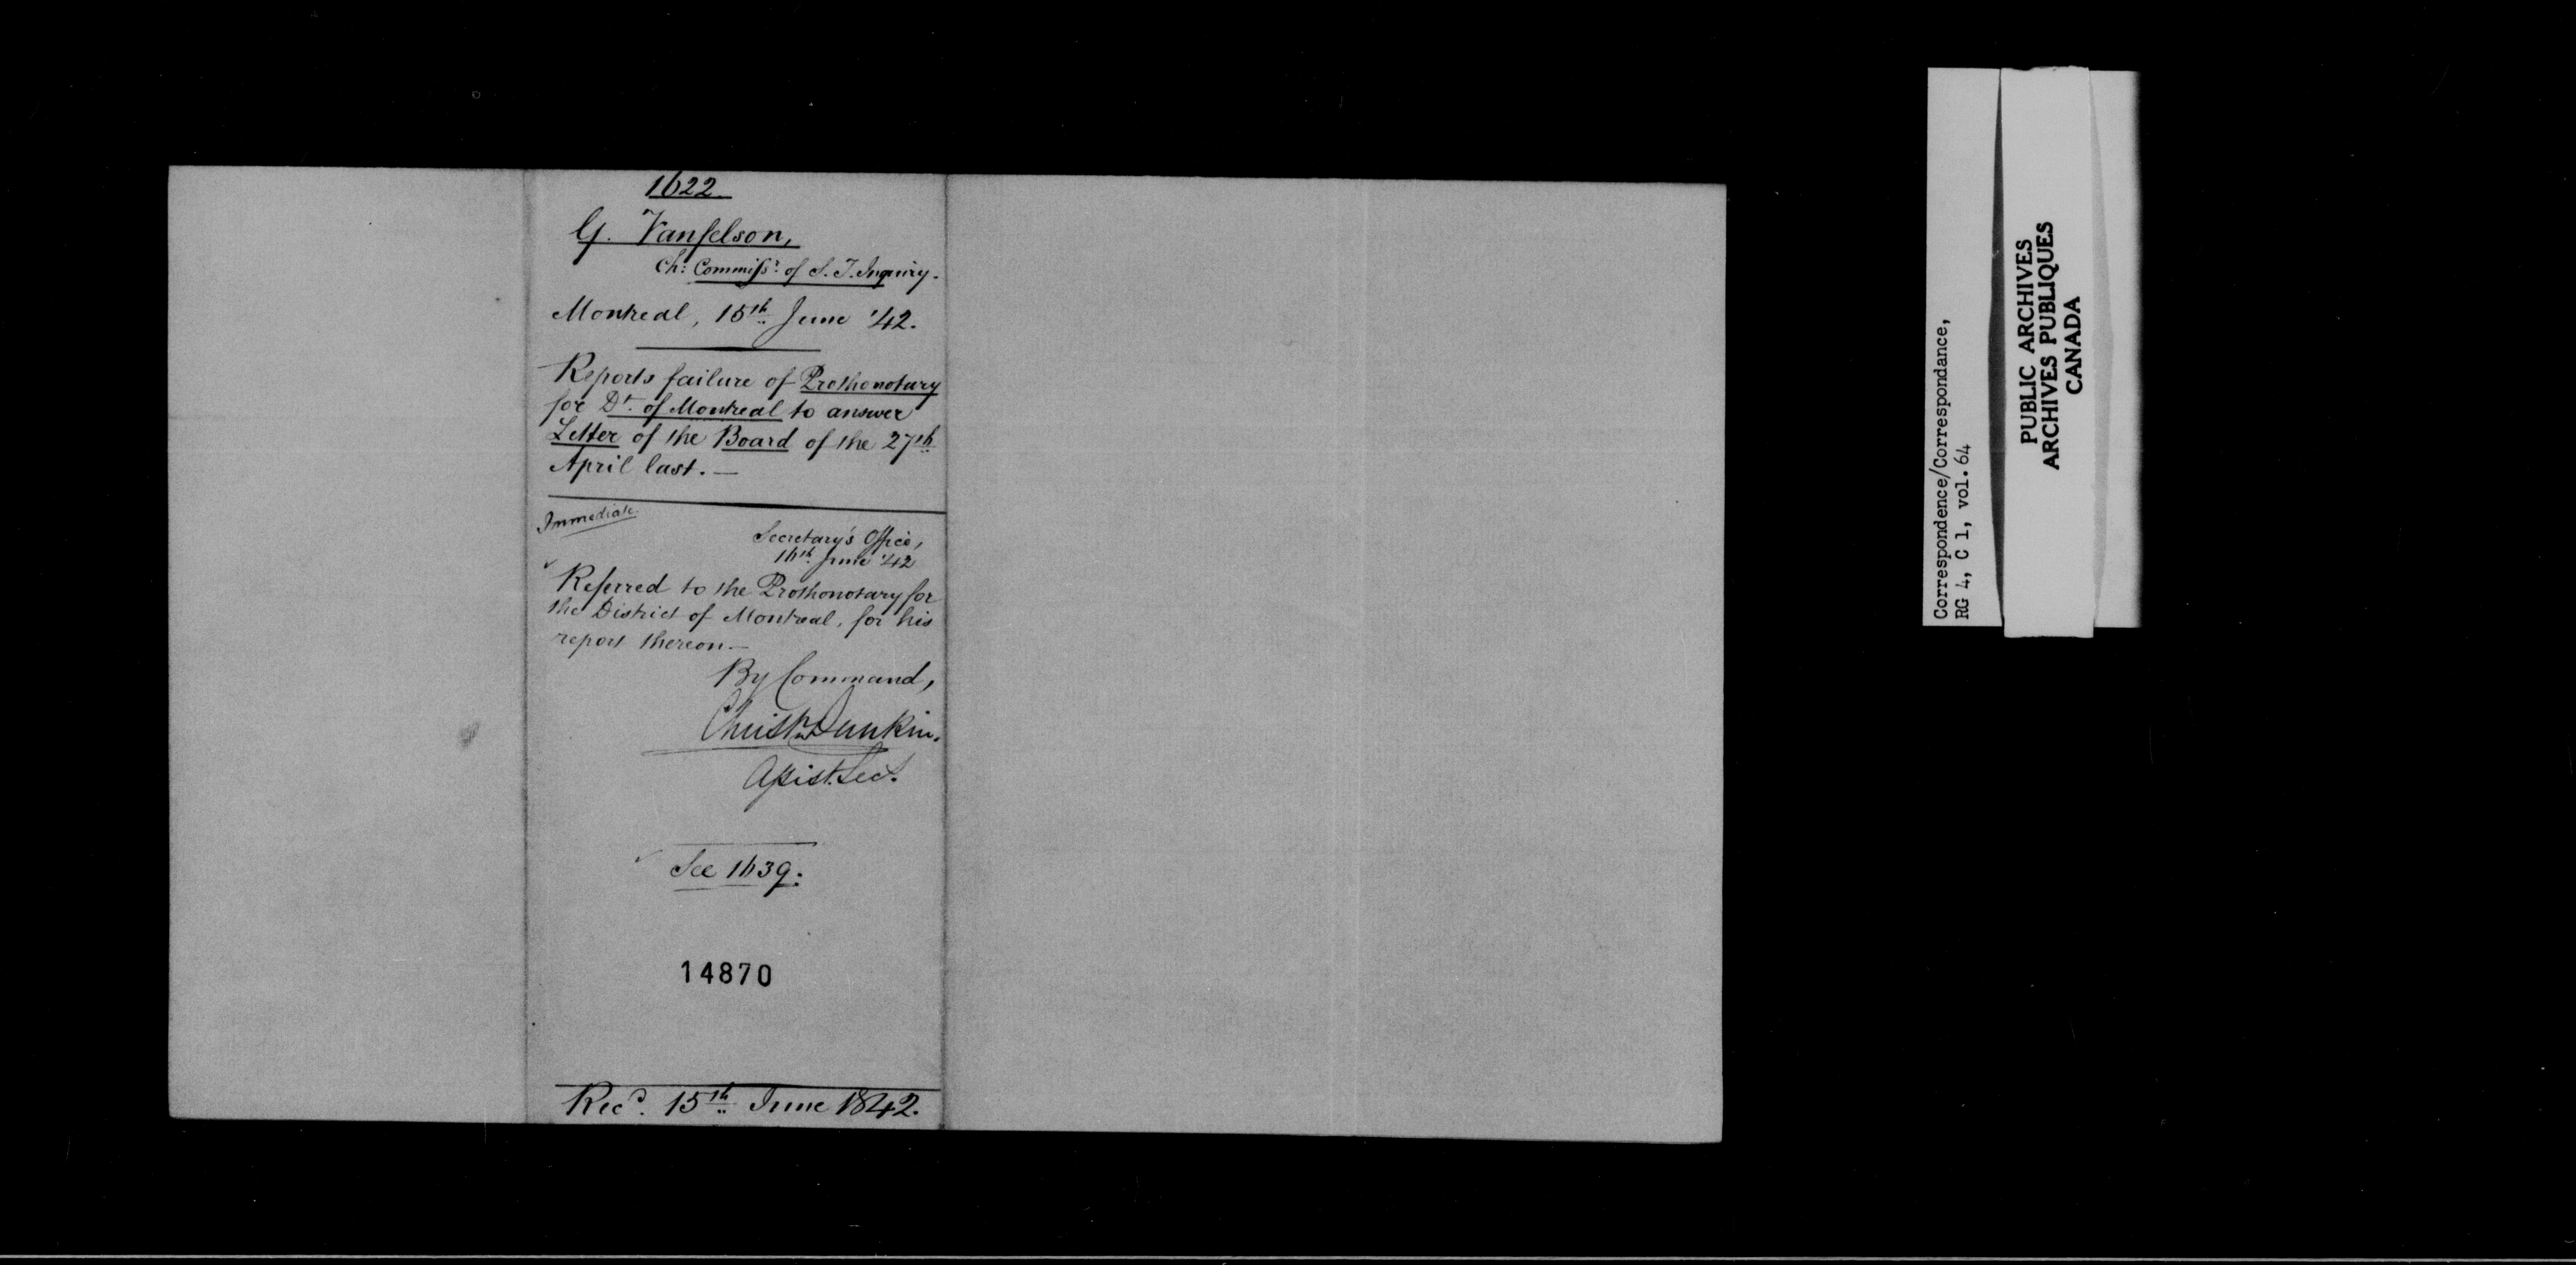 1622
G. Vanfelson,
Ch: Commissr. of S. T. Inquiry.
Montreal, 15th June '42.
Reports failure of Prothonotary
for Dt. of Montreal to answer
Letter of the Board of the 27th
April last.—
Immediate.
Secretary's Office,
16th June '42
Referred to the Prothonotary for
the District of Montreal, for his
report thereon.—
By Command,
Christr Dunkin.
Assist. Sec.
See 1639.
14870
Recd. 15th June 1842.
Correspondence/Correspondance,
RG 4, C 1, vol. 64
PUBLIC ARCHIVES
ARCHIVES PUBLIQUES
CANADA